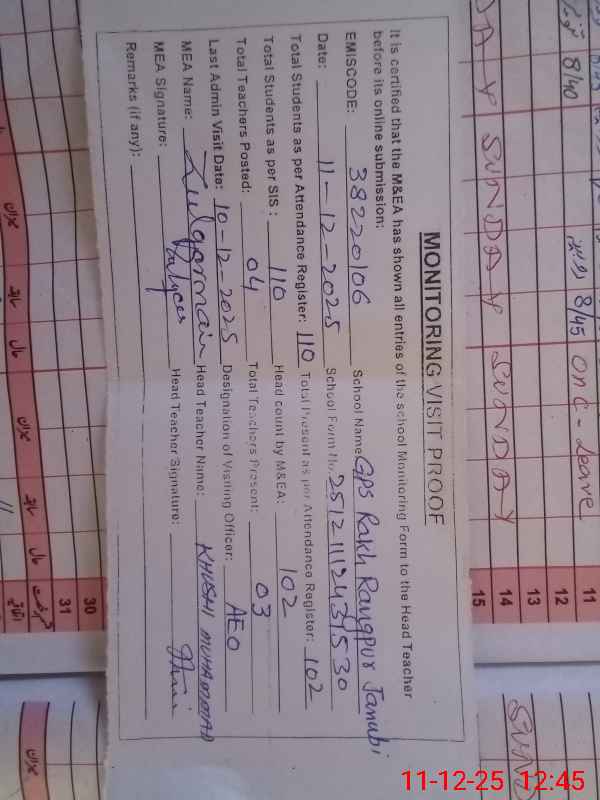 MONITORING VISIT PROOF
It is certified that the M&EA has shown all entries of the school Monitoring Form to the Head Teacher
before its online submission:
EMISCODE: 38220106 School Name: GPS Rakh Rangpur Janubi
Date: 11-12-2025 School Form No. 2512111243
Total Students as per Attendance Register: 110 Total Present as per Attendance Register: 102
Total Students as per SIS: 110 Head count by M&EA: 102
Total Teachers Posted: 04 Total Teachers Present: 03
Last Admin Visit Date: 10-12-2025 Designation of Visiting Officer: AEO
MEA Name: Zulqarnain Head Teacher Name: KHUSHI MUHAMMAD
MEA Signature: Head Teacher Signature:
Remarks (if any):
SUNDAY SUNDAY
8/40
8/45 on C-Leave
11
12
13
14
15
30
31
11-12-25 12:45